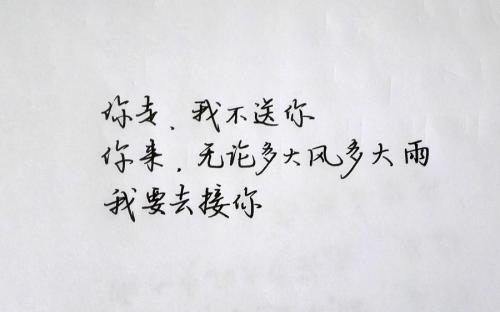 你走、我不送你
你来，无论多大风多大雨
我要去接你